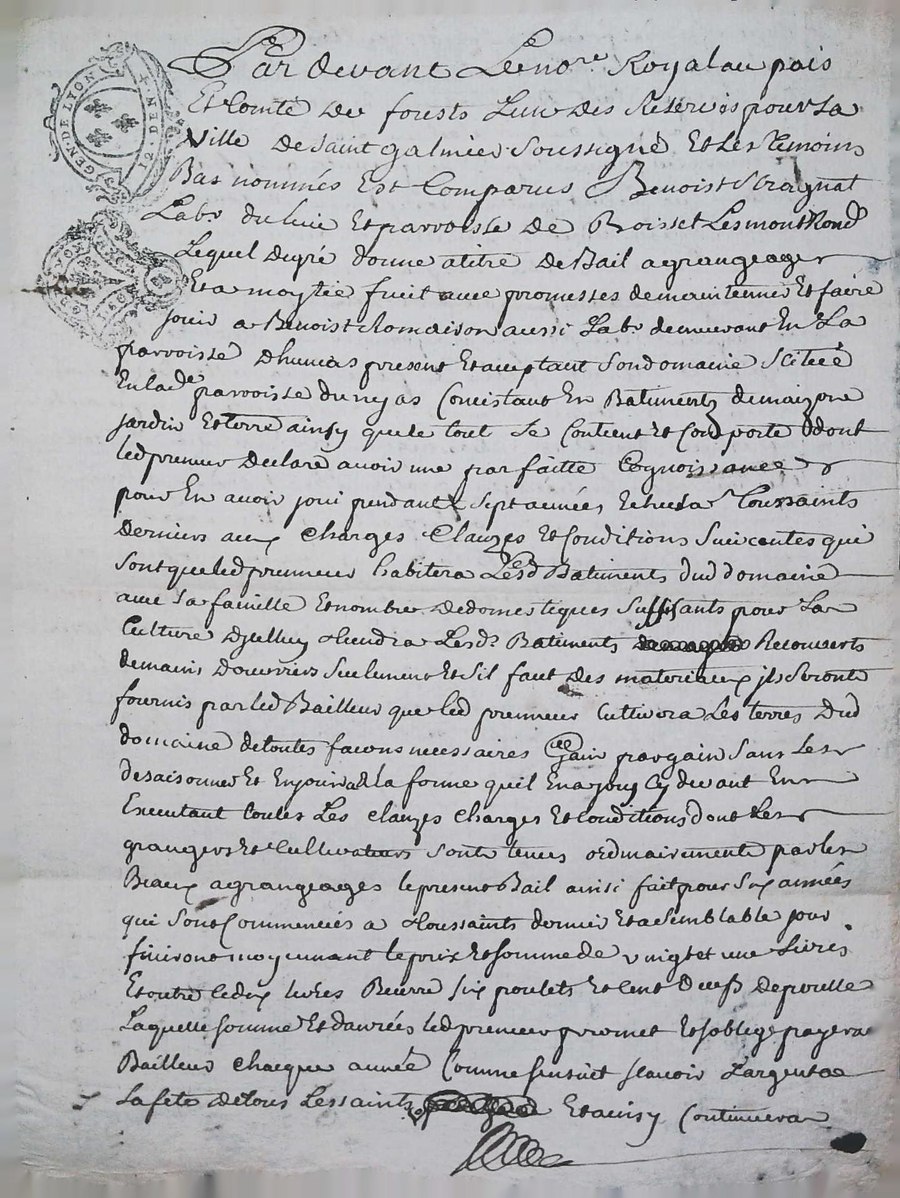 GEN. DE LYON
Par devant Le no.re Royal au païs
Et Comté de forests Lun des Réservés pour La
ville de Saint galmier Soussigné Et Les Temoins
Bas nommés Est Comparus Benoist
Lab.r du lieu Et parroisse De Boisset Lesmontrond
Lequel degré donne a titre De Bail a grangeage
Et a moytié fruit avec promesses de maintenir Et faire
jouir a Benoist Romaison aussi Lab.r demeurant En La
parroisse present Et acceptant Son domaine Scitué
En lad.e parroisse Consistant En Batiments de maizon
jardin Et terre ainsy que le tout Se Contient Et Comporte dont
led preneur declare avoir une parfaitte Cognoissance
pour En avoir joui pendant Sept années Toussaints
derniers aux Charges Clauzes Et Conditions Suivantes qui
sont que led preneur habitera Lesd Batiments dud domaine
avec Sa famille Et nombre de domestiques Suffisants pour La
Culture Lesd. Batiments Recouverts
de mains Douvriers Seulement Et Sil faut Des materiaux jls Seront
fournis par led Bailleur que led preneur Cultivera Les terres Dud
domaine de toutes façons necessaires gain par gain Sans Les
desaisonner Et En jouira de la forme quil En a jouy Cy devant En
Executant toutes Les clauzes Charges Et Conditions dont Les
grangers Et Cultivateurs Sont tenus ordinairement par les
Beaux a grangeages le present Bail ainsi fait pour Six années
qui Sont Commencées a Toussaints dernier Et a Semblable jour
finiront moyennant le prix Et Somme de vingt et une Livres
Et outre ce dix livres Beurre Six poulets Et Cent
Laquelle Somme Et danrées led preneur promet Et Soblige payer a
Bailleur chaque année Comme Sensuit Scavoir Largent a
La fete de tous Les saints Et ainsy Continuera